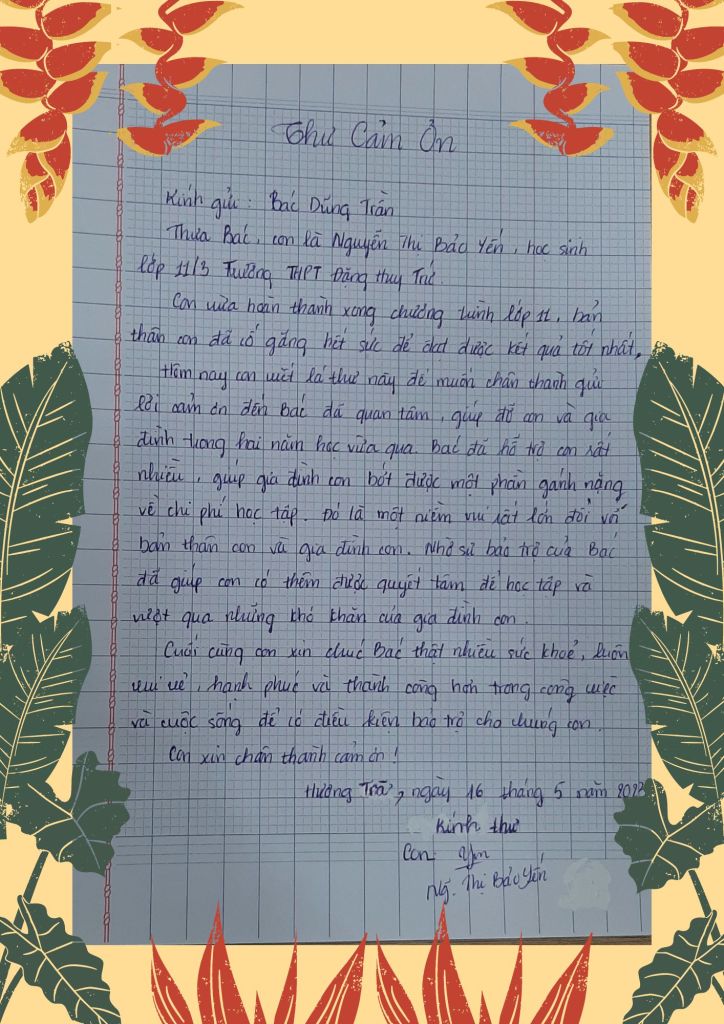 Thư Cảm Ơn
Kính gửi : Bác Dũng Trần
Thưa Bác, con là Nguyễn Thị Bảo Yến, học sinh
lớp 11/3 Trường THPT Đặng Huy Trứ.
Con vừa hoàn thành xong chương trình lớp 11, bản
thân con đã cố gắng hết sức để đạt được kết quả tốt nhất.
Hôm nay con viết lá thư này để muốn chân thành gửi
lời cảm ơn đến Bác đã quan tâm, giúp đỡ con và gia
đình trong hai năm học vừa qua. Bác đã hỗ trợ con rất
nhiều, giúp gia đình con bớt được một phần gánh nặng
về chi phí học tập. Đó là một niềm vui rất lớn đối với
bản thân con và gia đình con. Nhờ sự bảo trợ của Bác
đã giúp con có thêm được quyết tâm để học tập và
vượt qua những khó khăn của gia đình con.
Cuối cùng con xin chúc Bác thật nhiều sức khoẻ, luôn
vui vẻ, hạnh phúc và thành công hơn trong công việc
và cuộc sống để có điều kiện bảo trợ cho chúng con.
Con xin chân thành cảm ơn !
Hương Trà, ngày 16 tháng 5 năm 2023
Kính thư
Con Yến
Ng. Thị Bảo Yến